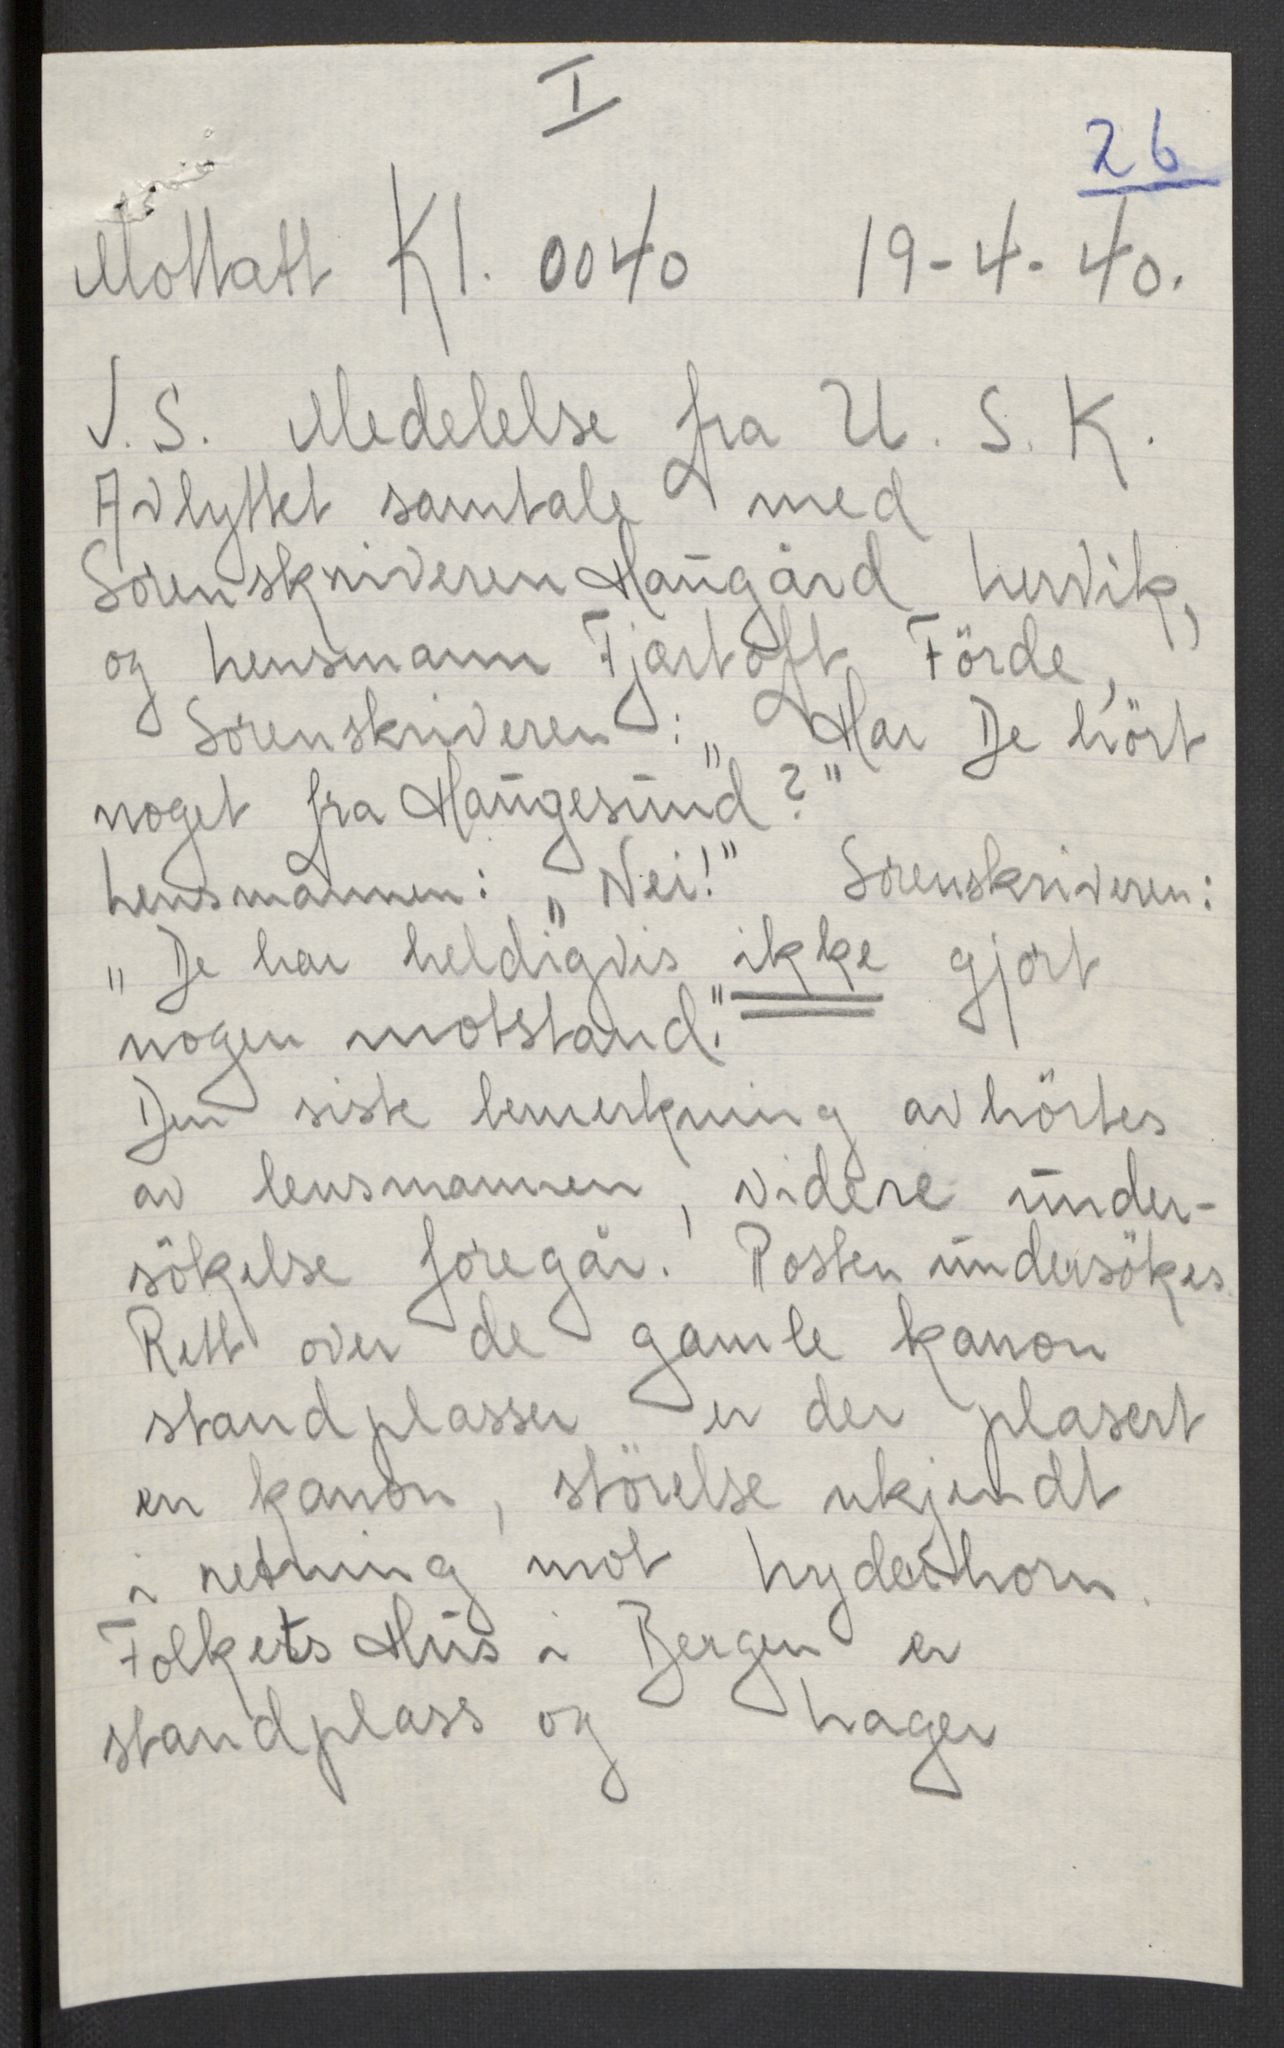 I
26
Mottatt Kl. 0040 19-4-40.
J. S. Medelelse fra U. S. K.
Avlyttet samtale med
Sörenskriveren Haugård Lervik,
og Lensmann Fjærtoft Förde,
Sörenskriveren: „Har De hört
noget fra Haugesund?"
Lensmannen: „Nei!" Sörenskriveren:
„De har heldigvis ikke gjort
nogen motstand."
Den siste bemerkning avhörtes
av lensmannen, videre under-
sökelse foregår. Posten undersökes.
Rett over de gamle kanon
standplasser er der plasert
en kanon, störelse ukjendt
i retning mot Lyderhorn.
Folkets Hus i Bergen er
standplass og Lager